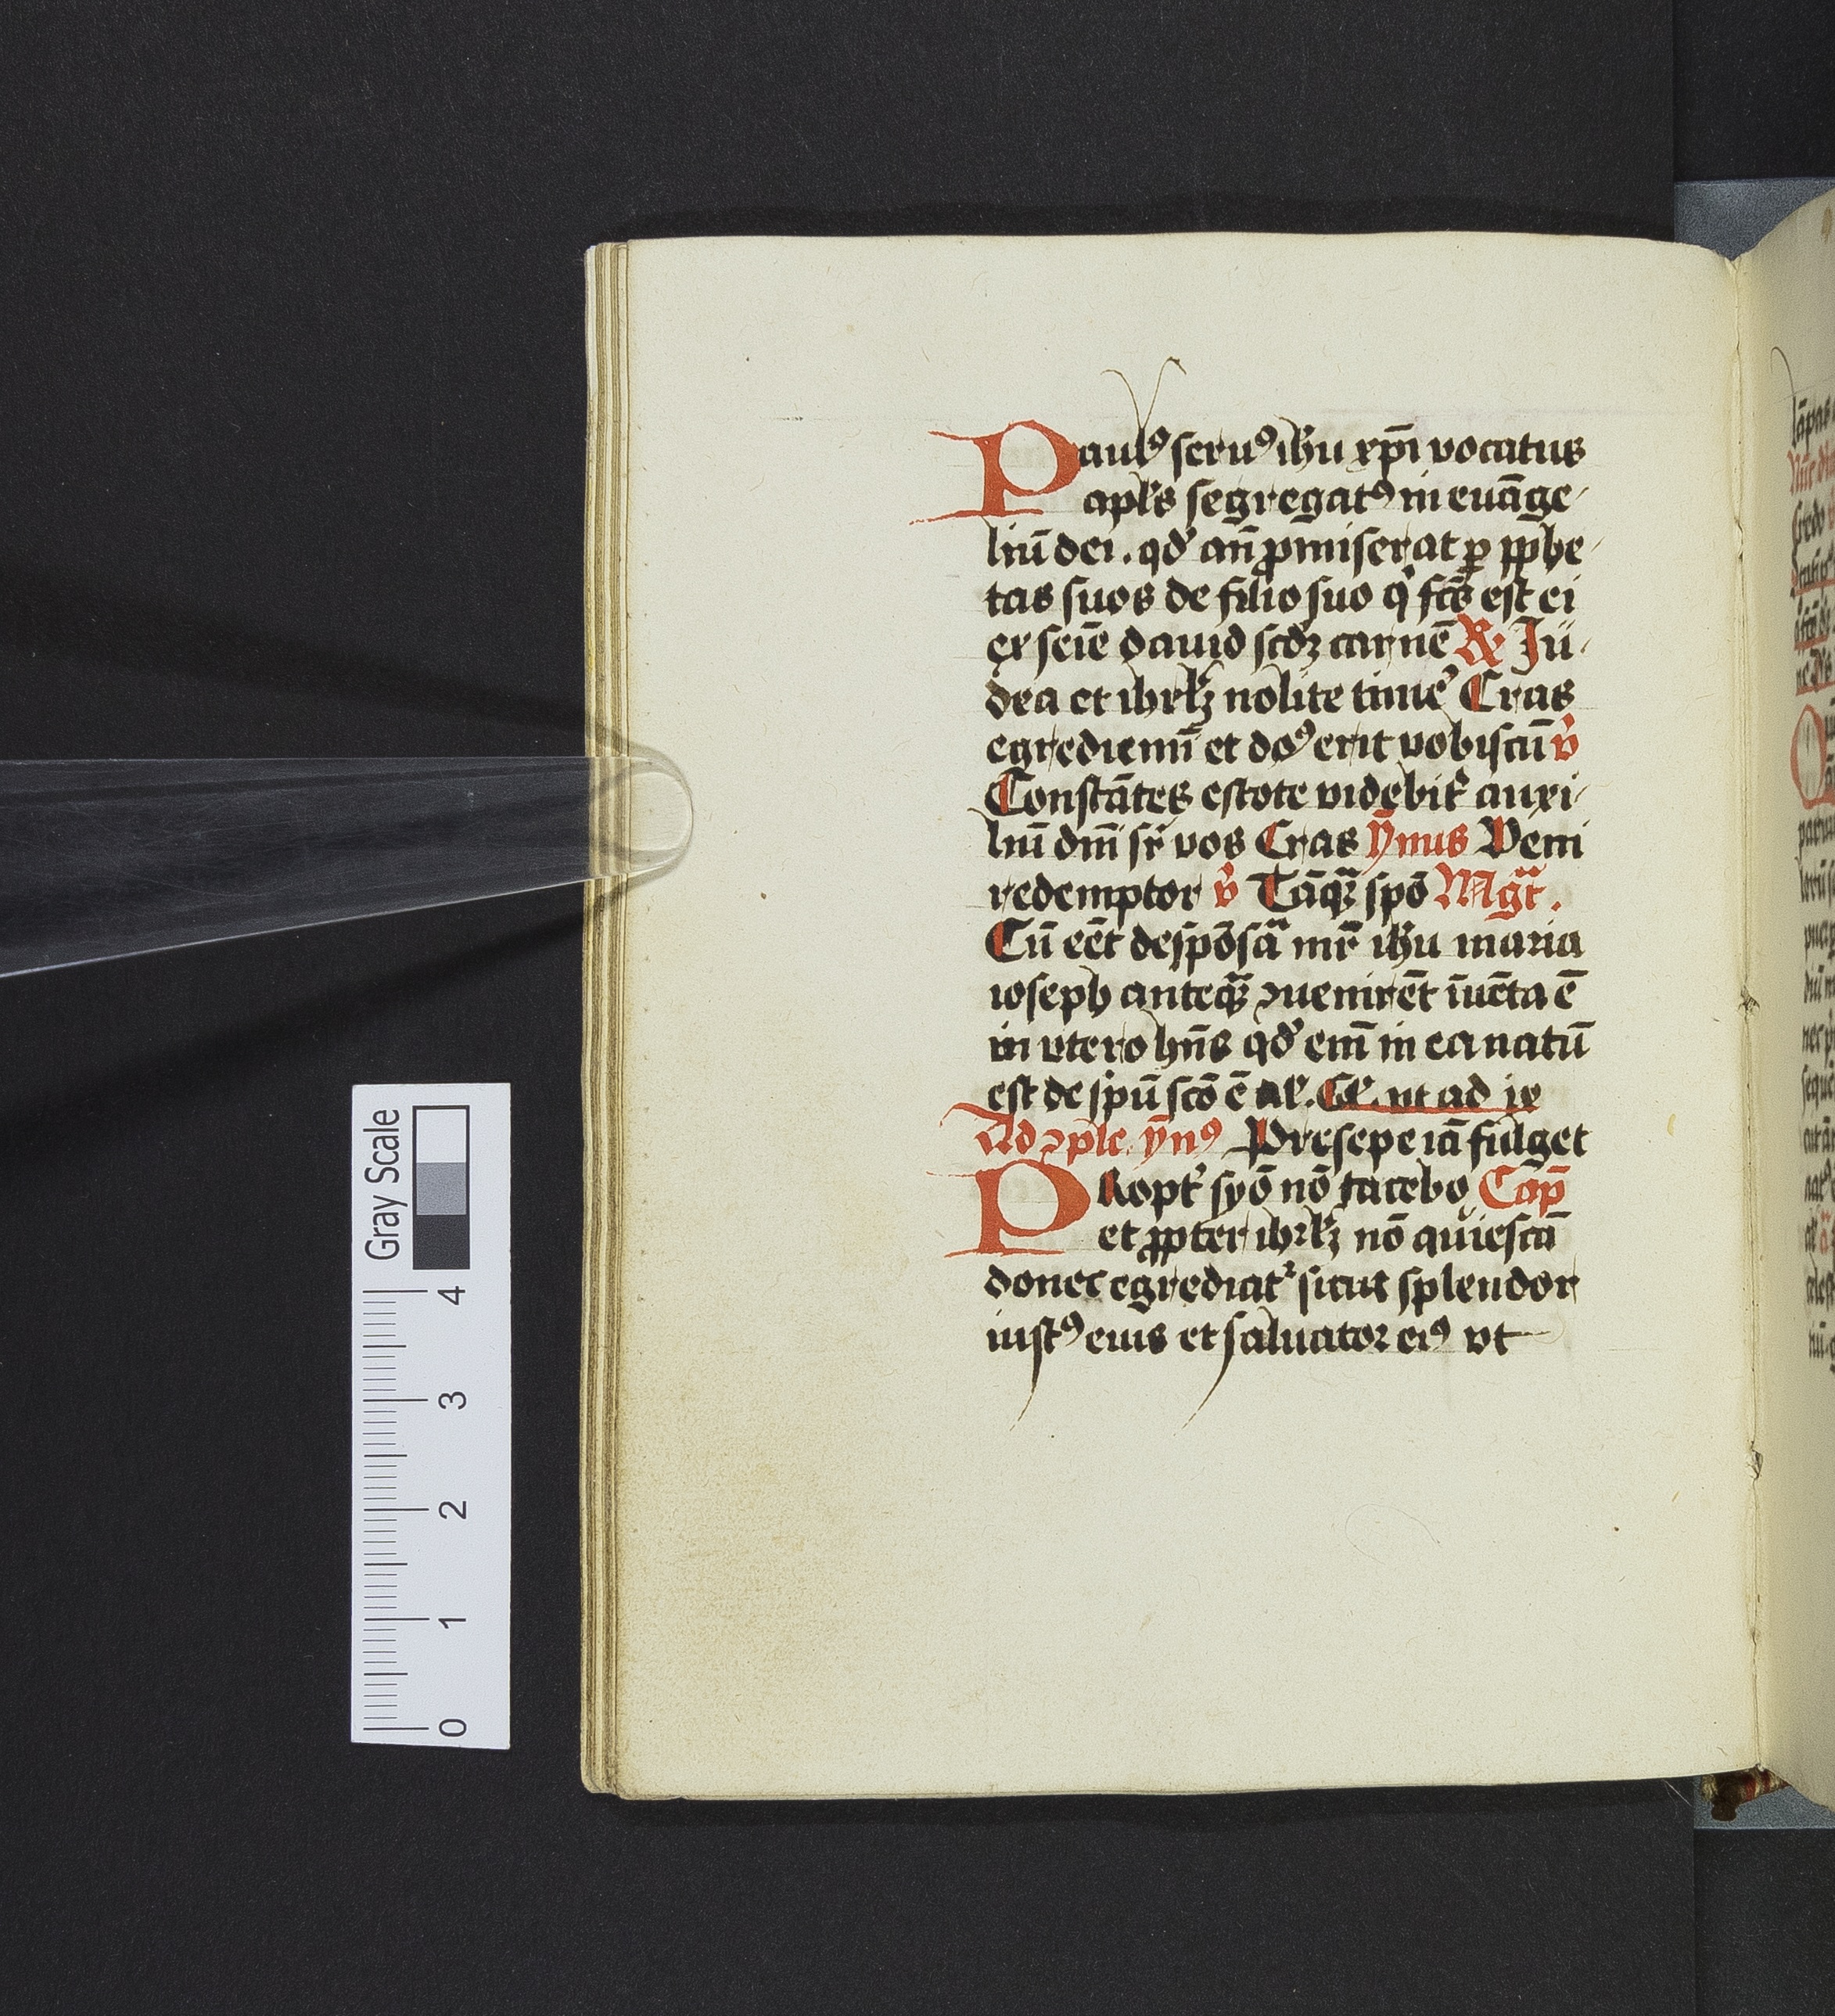 Paulꝰ seruꝰ ihu xp̄i vocatus
apl's segregatꝰ in euāge
liū dei . qd' an̄ ꝓmiserat ꝑ ꝓphe
tas suos de filio suo q' fc̄s est ei
ex seīe dauid scd'ꝫ carnē ℟ Iu
dea et ihrl'ꝫ nolite timē' Cras
egrediemī et dōꝰ erit vobiscū v̄
Constātes estote videbit' auxi
liū dn̄i sr̄ vos Cras ȳmus Veni
redemptor v̄ Tāqꝫ spō Mgt̄ .
Cū eēt despōsā mr̄ ihu maria
ioseph anteqꝫ ꝯuenirēt īuēta ē
in vtero hn̄s qd' em̄ in ea natū
est de sp̄u scō ē al' . Cl'. vt ad ix
Ad ꝯple. ȳnꝰ Presepe iā fulget
PRopt' syō nō tacebo Cap̄
et ꝓpter ihrl'ꝫ nō quiescā
donec egrediat' sicut splendor
iustꝰ eius et saluator eiꝰ vt
Gray Scale
4
3
2
1
0